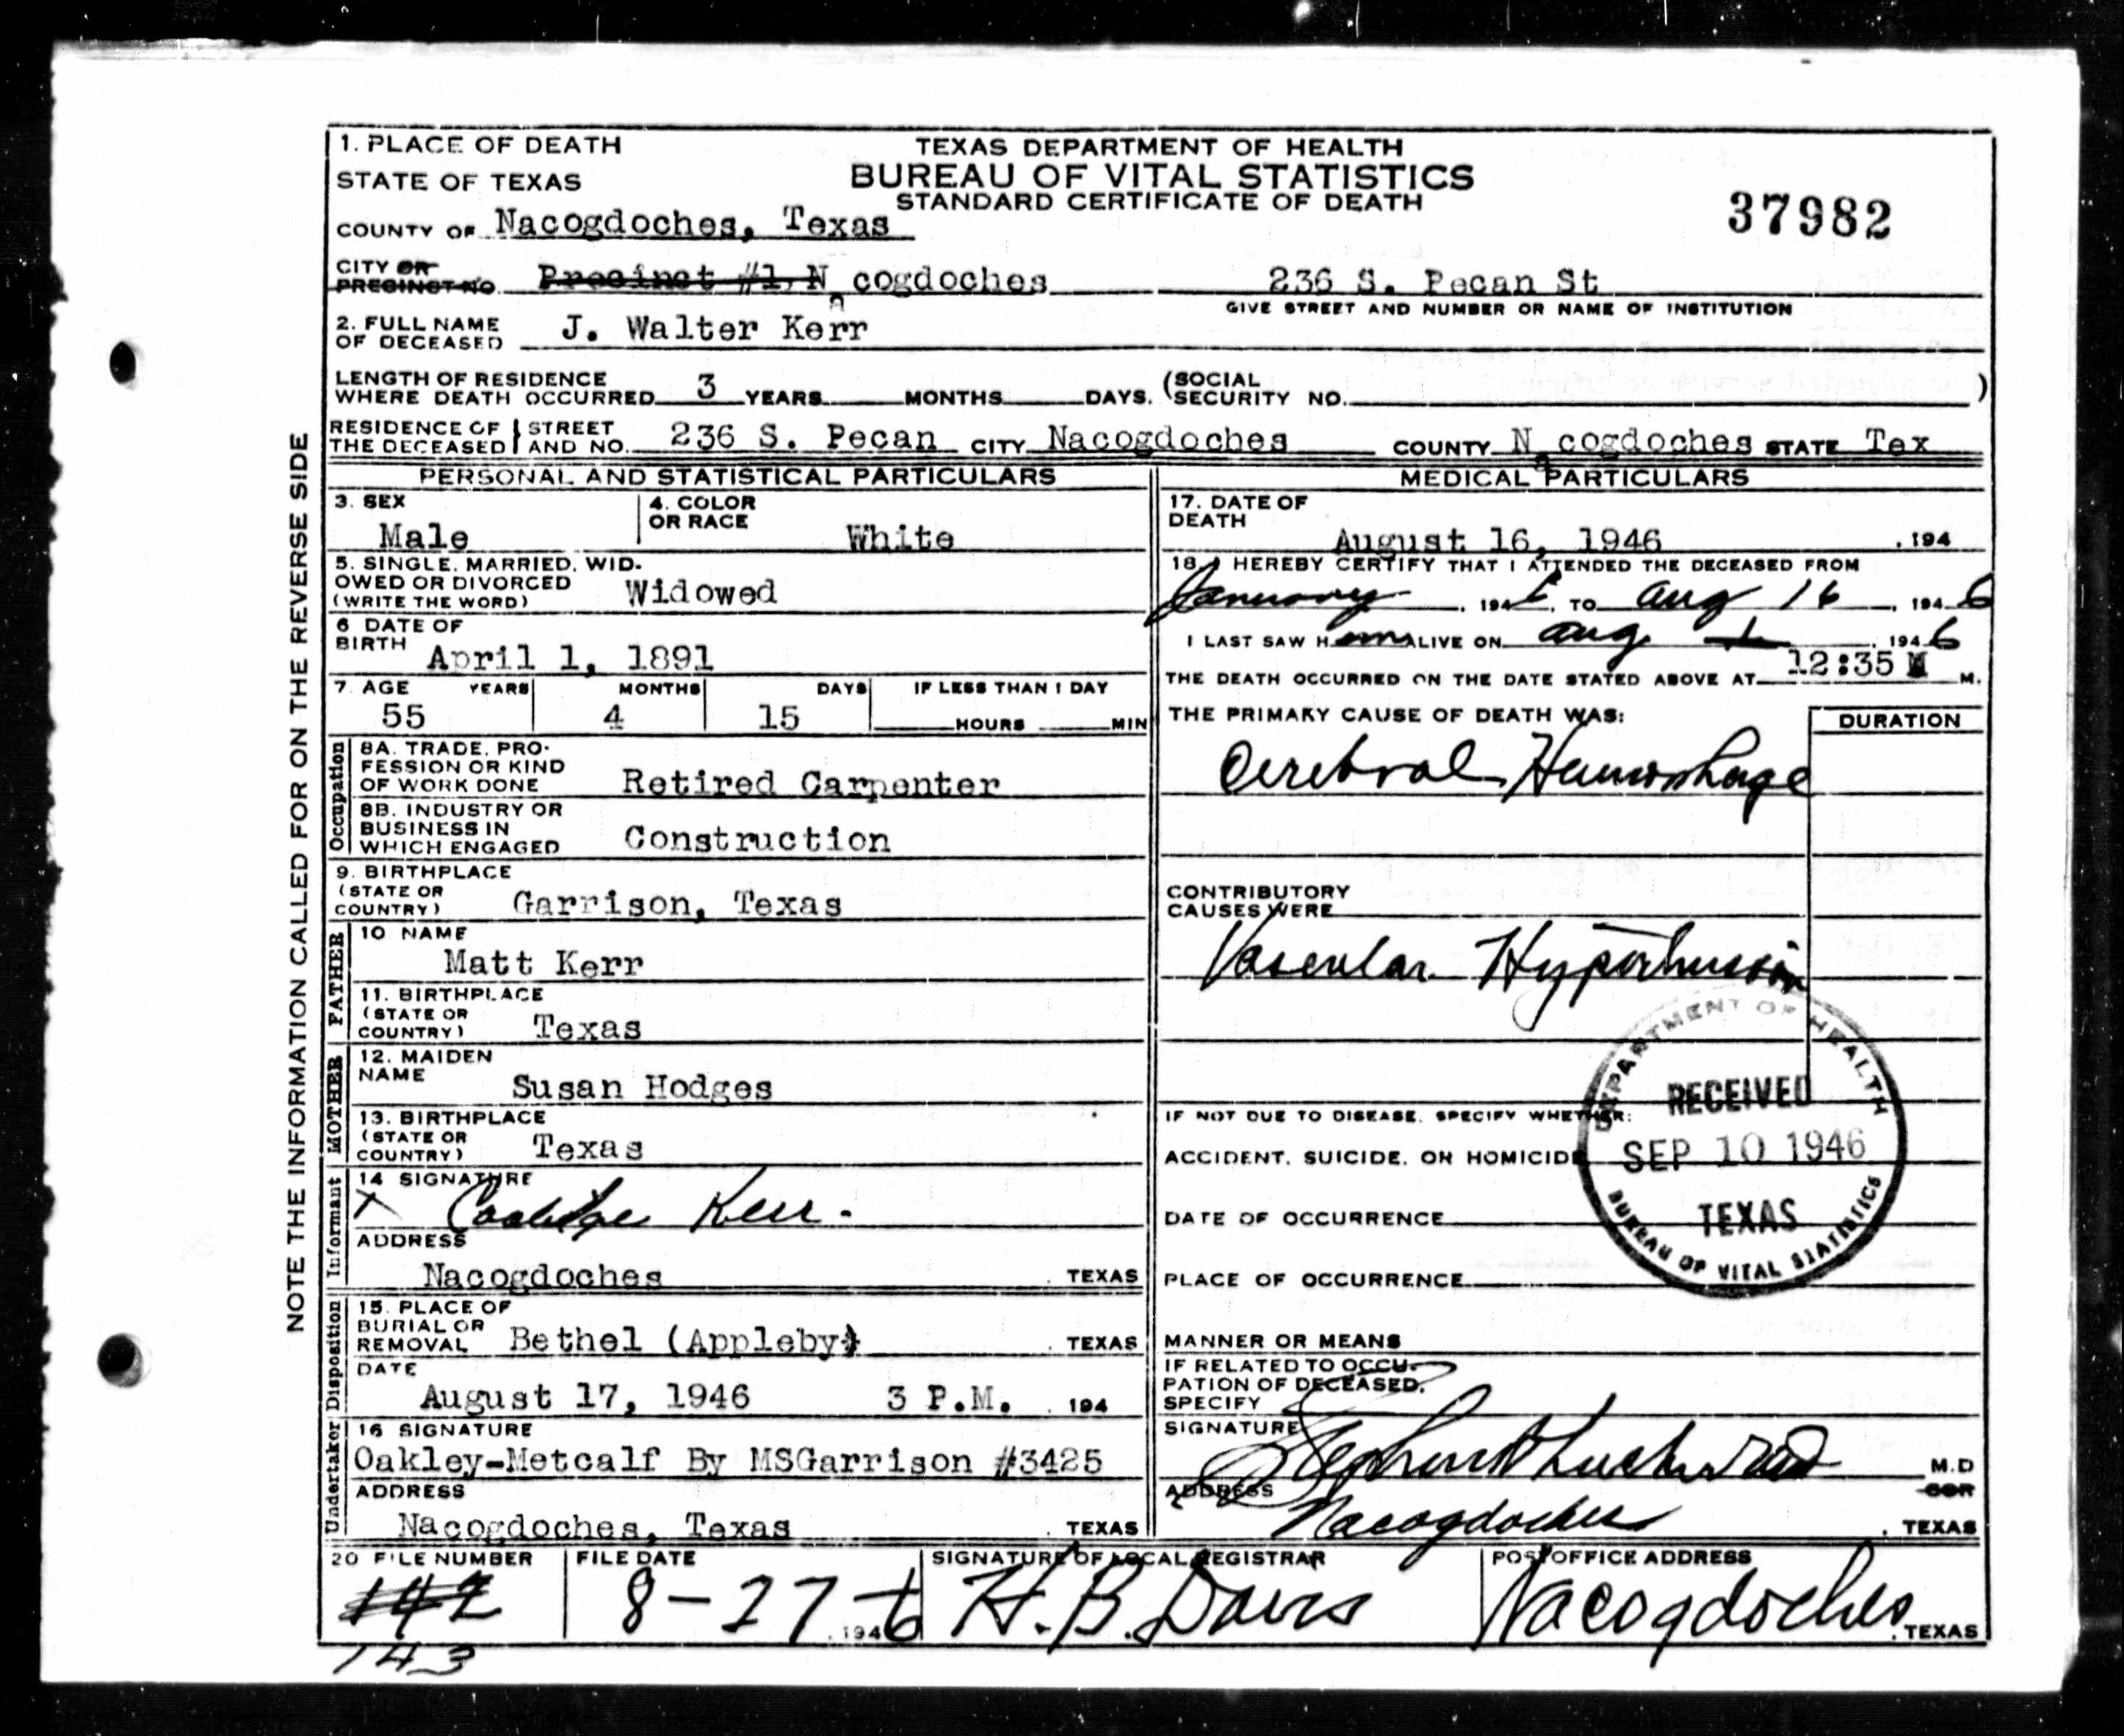 1. PLACE OF DEATH
STATE OF TEXAS
COUNTY OF Nacogdoches, Texas
TEXAS DEPARTMENT OF HEALTH
BUREAU OF VITAL STATISTICS
STANDARD CERTIFICATE OF DEATH
37982
CITY OR PRECINCT NO. Precinct #1, Nacogdoches 236 S. Pecan St
GIVE STREET AND NUMBER OR NAME OF INSTITUTION
2. FULL NAME OF DECEASED J. Walter Kerr
LENGTH OF RESIDENCE WHERE DEATH OCCURRED 3 YEARS MONTHS DAYS. (SOCIAL SECURITY NO. )
RESIDENCE OF THE DECEASED STREET AND NO. 236 S. Pecan CITY Nacogdoches COUNTY Nacogdoches STATE Tex
NOTE THE INFORMATION CALLED FOR ON THE REVERSE SIDE
PERSONAL AND STATISTICAL PARTICULARS
3. SEX Male
4. COLOR OR RACE White
5. SINGLE, MARRIED, WIDOWED OR DIVORCED (WRITE THE WORD) Widowed
6 DATE OF BIRTH April 1, 1891
7. AGE YEARS MONTHS DAYS IF LESS THAN 1 DAY
55 4 15 HOURS MIN
Occupation
8A. TRADE, PROFESSION OR KIND OF WORK DONE Retired Carpenter
8B. INDUSTRY OR BUSINESS IN WHICH ENGAGED Construction
9. BIRTHPLACE (STATE OR COUNTRY) Garrison, Texas
FATHER
10 NAME Matt Kerr
11. BIRTHPLACE (STATE OR COUNTRY) Texas
MOTHER
12. MAIDEN NAME Susan Hodges
13. BIRTHPLACE (STATE OR COUNTRY) Texas
Informant
14 SIGNATURE
X Coolidge Kerr.
ADDRESS
Nacogdoches TEXAS
Disposition
15. PLACE OF BURIAL OR REMOVAL Bethel (Appleby) TEXAS
DATE
August 17, 1946 3 P.M. , 194
Undertaker
16 SIGNATURE
Oakley-Metcalf By MSGarrison #3425
ADDRESS
Nacogdoches, Texas , TEXAS
MEDICAL PARTICULARS
17. DATE OF DEATH August 16, 1946 , 194
18. I HEREBY CERTIFY THAT I ATTENDED THE DECEASED FROM
January , 1946, TO Aug 16 , 1946
I LAST SAW H im ALIVE ON Aug 1 , 1946
THE DEATH OCCURRED ON THE DATE STATED ABOVE AT 12:35 M.
THE PRIMARY CAUSE OF DEATH WAS: DURATION
Cerebral Hemorrhage
CONTRIBUTORY CAUSES WERE
Vascular Hypertension
IF NOT DUE TO DISEASE, SPECIFY WHETHER:
ACCIDENT, SUICIDE, OR HOMICIDE
DATE OF OCCURRENCE
PLACE OF OCCURRENCE
DEPARTMENT OF HEALTH
RECEIVED
SEP 10 1946
TEXAS
BUREAU OF VITAL STATISTICS
MANNER OR MEANS
IF RELATED TO OCCUPATION OF DECEASED, SPECIFY
SIGNATURE M.D
COR
ADDRESS Nacogdoches , TEXAS
20 FILE NUMBER FILE DATE SIGNATURE OF LOCAL REGISTRAR POST OFFICE ADDRESS
142 8-27 , 1946 H. B. Davis Nacogdoches , TEXAS
143